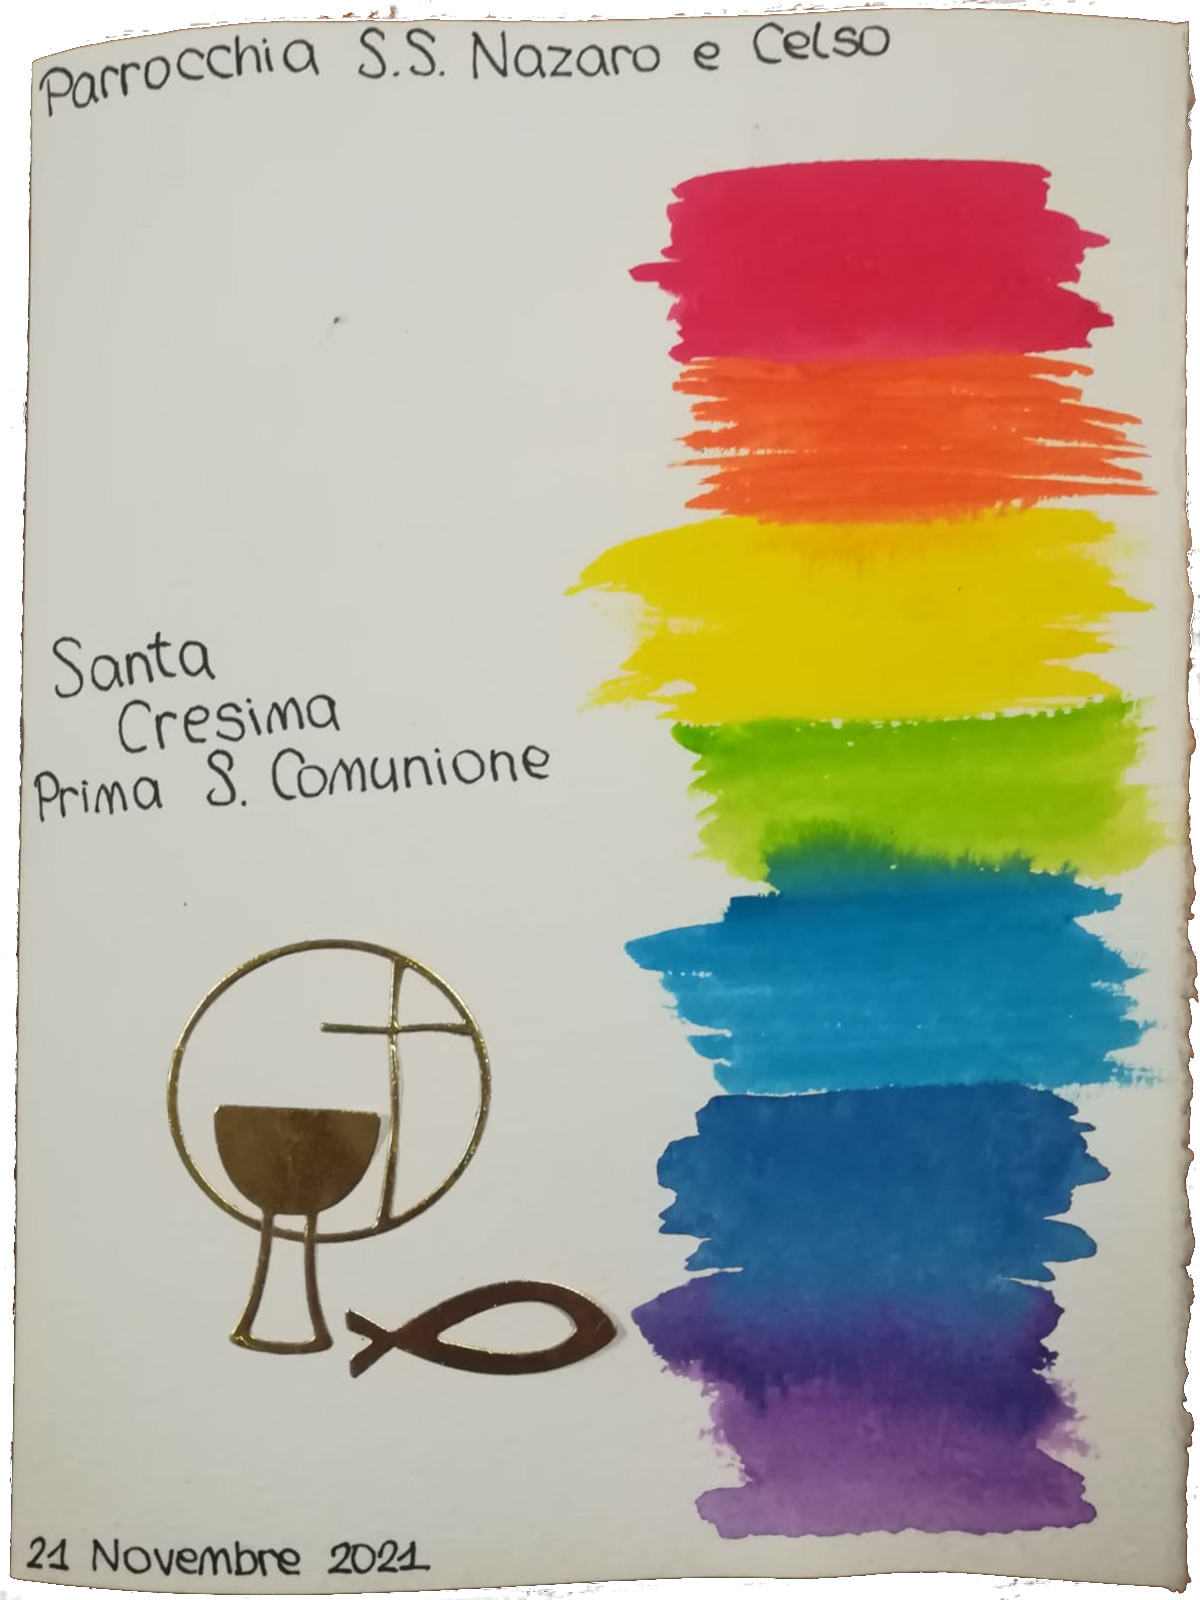 Parrocchia S.S. Nazaro e Celso
Santa
Cresima
Prima S. Comunione
21 Novembre 2021